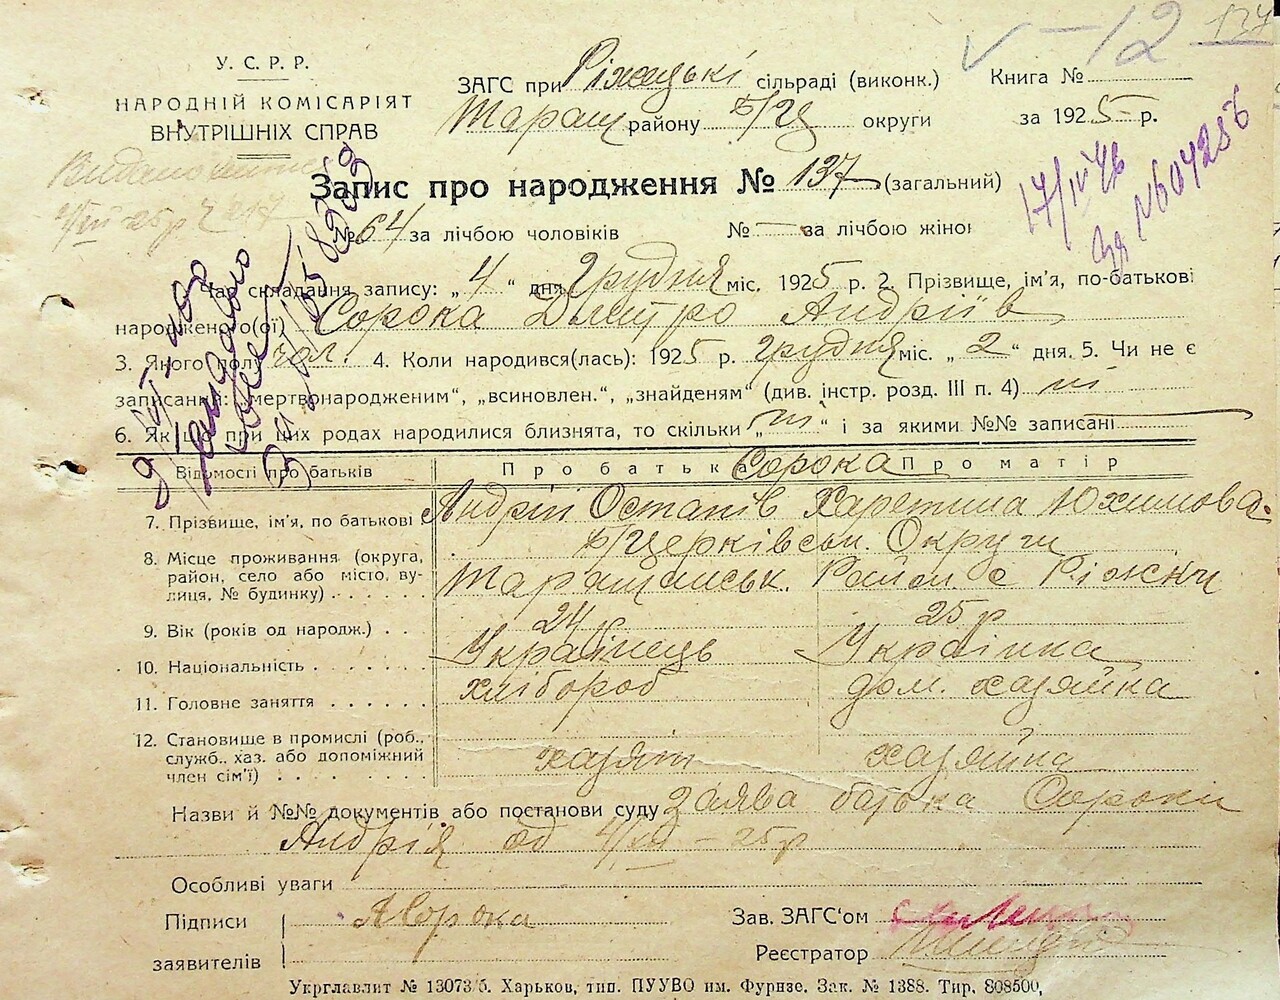 V – 12 137
У. С. Р. Р.
НАРОДНІЙ КОМІСАРІЯТ
ВНУТРІШНІХ СПРАВ
ЗАГС при Ріжецькі сільраді (виконк.) Книга №
Таращ району Б/Ця округи за 1925 р.
17/IV 46
№604256
Запис про народження № 137 (загальний)
№ 64 за лічбою чоловіків № — за лічбою жіно
Час складання запису: „4“ дня Грудня міс. 1925 р. 2. Прізвище, ім'я, по-батькові
народженого(ої) Сорока Дмитро Андріїв
3. Якого полу чол. 4. Коли народився(лась): 1925 р. грудня міс. „2“ дня. 5. Чи не є
записаний: „мертвонародженим“, „всиновлен.“, „знайденям“ (див. інстр. розд. III п. 4) ні
6. Як що при цих родах народилися близнята, то скільки „ні“ і за якими №№ записані —
Відомості про батьків Про батька Сорока Про матір
7. Прізвище, ім'я, по батькові Андрій Остапів Харетина Юхимова.
8. Місце проживання (округа, район, село або місто, вулиця, № будинку) Б/Церківськ. Округи
Таращанськ. Район с Ріжки
9. Вік (років од народж.) 24 р 25 р
10. Національність Українець Українка
11. Головне заняття хлібороб дом. хазяйка
12. Становище в промислі (роб., служб., хаз. або допоміжний член сім'ї) хазяїн хазяйка
Назви й №№ документів або постанови суду Заява батька Сороки
Андрія од 4/XII – 25 р
Особливі уваги
Підписи заявителів АСорока
Зав. ЗАГС'ом
Реєстратор
Укрглавлит № 13073/б. Харьков, тип. ПУУВО им. Фурнзе. Зак. № 1388. Тир. 808500,